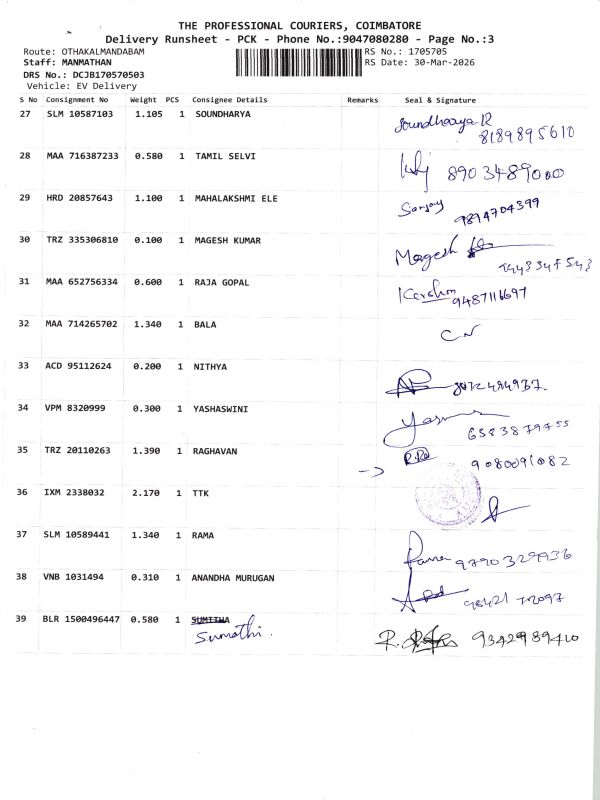 THE PROFESSIONAL COURIERS, COIMBATORE
Delivery Runsheet - PCK - Phone No.:9047080280 - Page No.:3
Route: OTHAKALMANDABAM RS No.: 1705705
Staff: MANMATHAN RS Date: 30-Mar-2026
DRS No.: DCJB170570503
Vehicle: EV Delivery
S No Consignment No Weight PCS Consignee Details Remarks Seal & Signature
27 SLM 10587103 1.105 1 SOUNDHARYA Soundharya R
8189895610
28 MAA 716387233 0.580 1 TAMIL SELVI 8903489000
29 HRD 20857643 1.100 1 MAHALAKSHMI ELE Sanjay
9894704399
30 TRZ 335306810 0.100 1 MAGESH KUMAR Magesh
31 MAA 652756334 0.600 1 RAJA GOPAL 9487116697
32 MAA 714265702 1.340 1 BALA
33 ACD 95112624 0.200 1 NITHYA
34 VPM 8320999 0.300 1 YASHASWINI
6383879455
35 TRZ 20110263 1.390 1 RAGHAVAN
9080091082
36 IXM 2338032 2.170 1 TTK
37 SLM 10589441 1.340 1 RAMA Rama 9790329936
38 VNB 1031494 0.310 1 ANANDHA MURUGAN
39 BLR 1500496447 0.580 1 SUMITHA
Sumathi. 9342989410